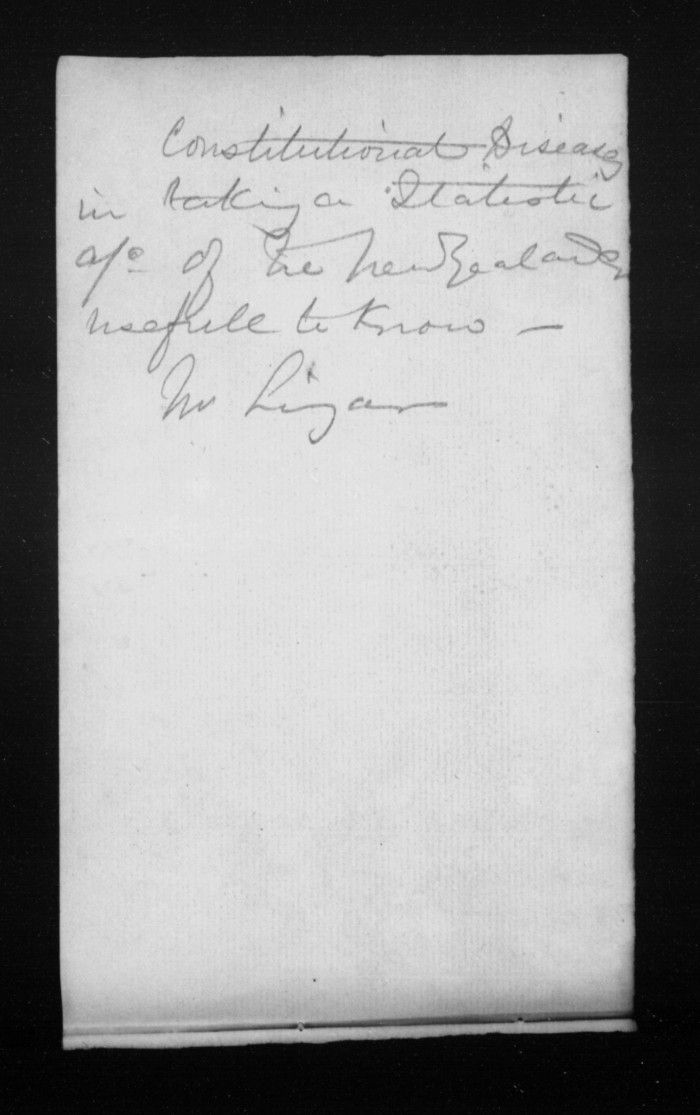 Constitutional Diseases
in taking a Statistic
a/c of the New Zealander
usefull to know —
Mr Ligar